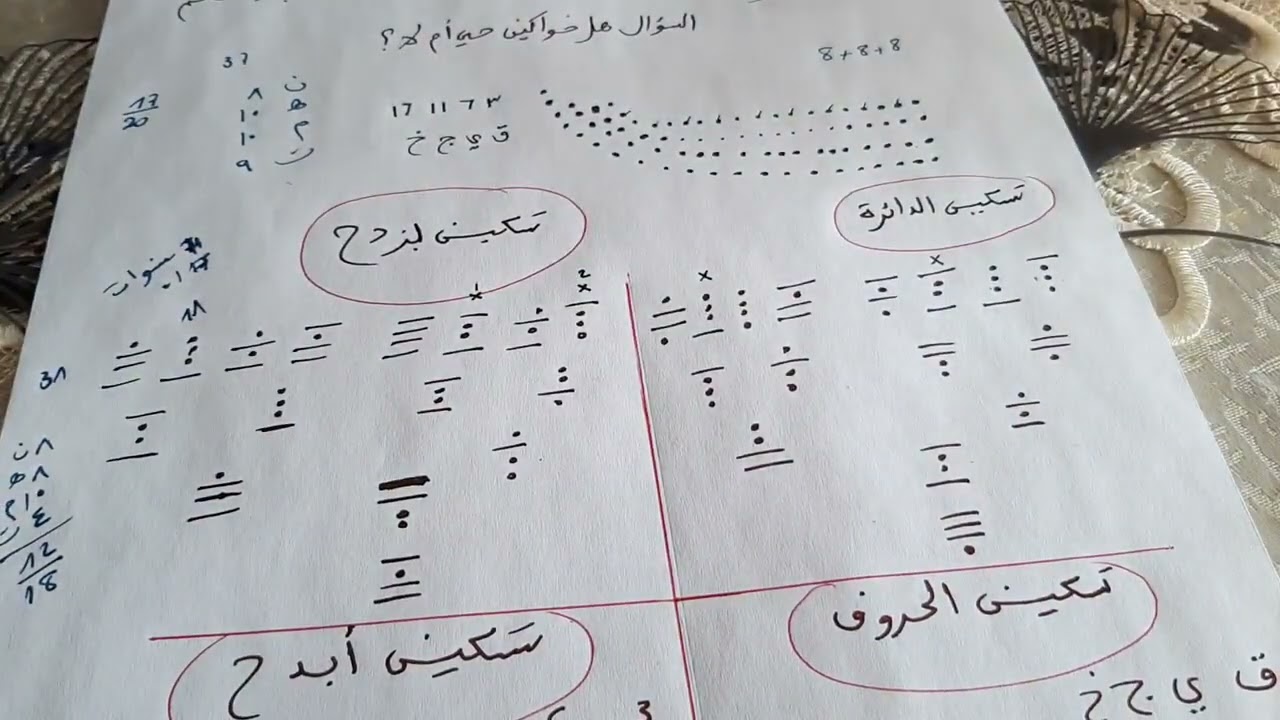 السؤال هل خواكين حي أم لا؟
8+8+8
37
ن ٨
ه ١٠
م ١٠
ت ٩
17
20
17 11 7 3
ق ي ج خ
تسكين الدائرة
تسكين لبزدح
سنوات
31
٨ ن
٨ ه
١٠ م
٤ ت
12
18
تسكين الحروف
تسكين أبدح
ق ي ج خ
3